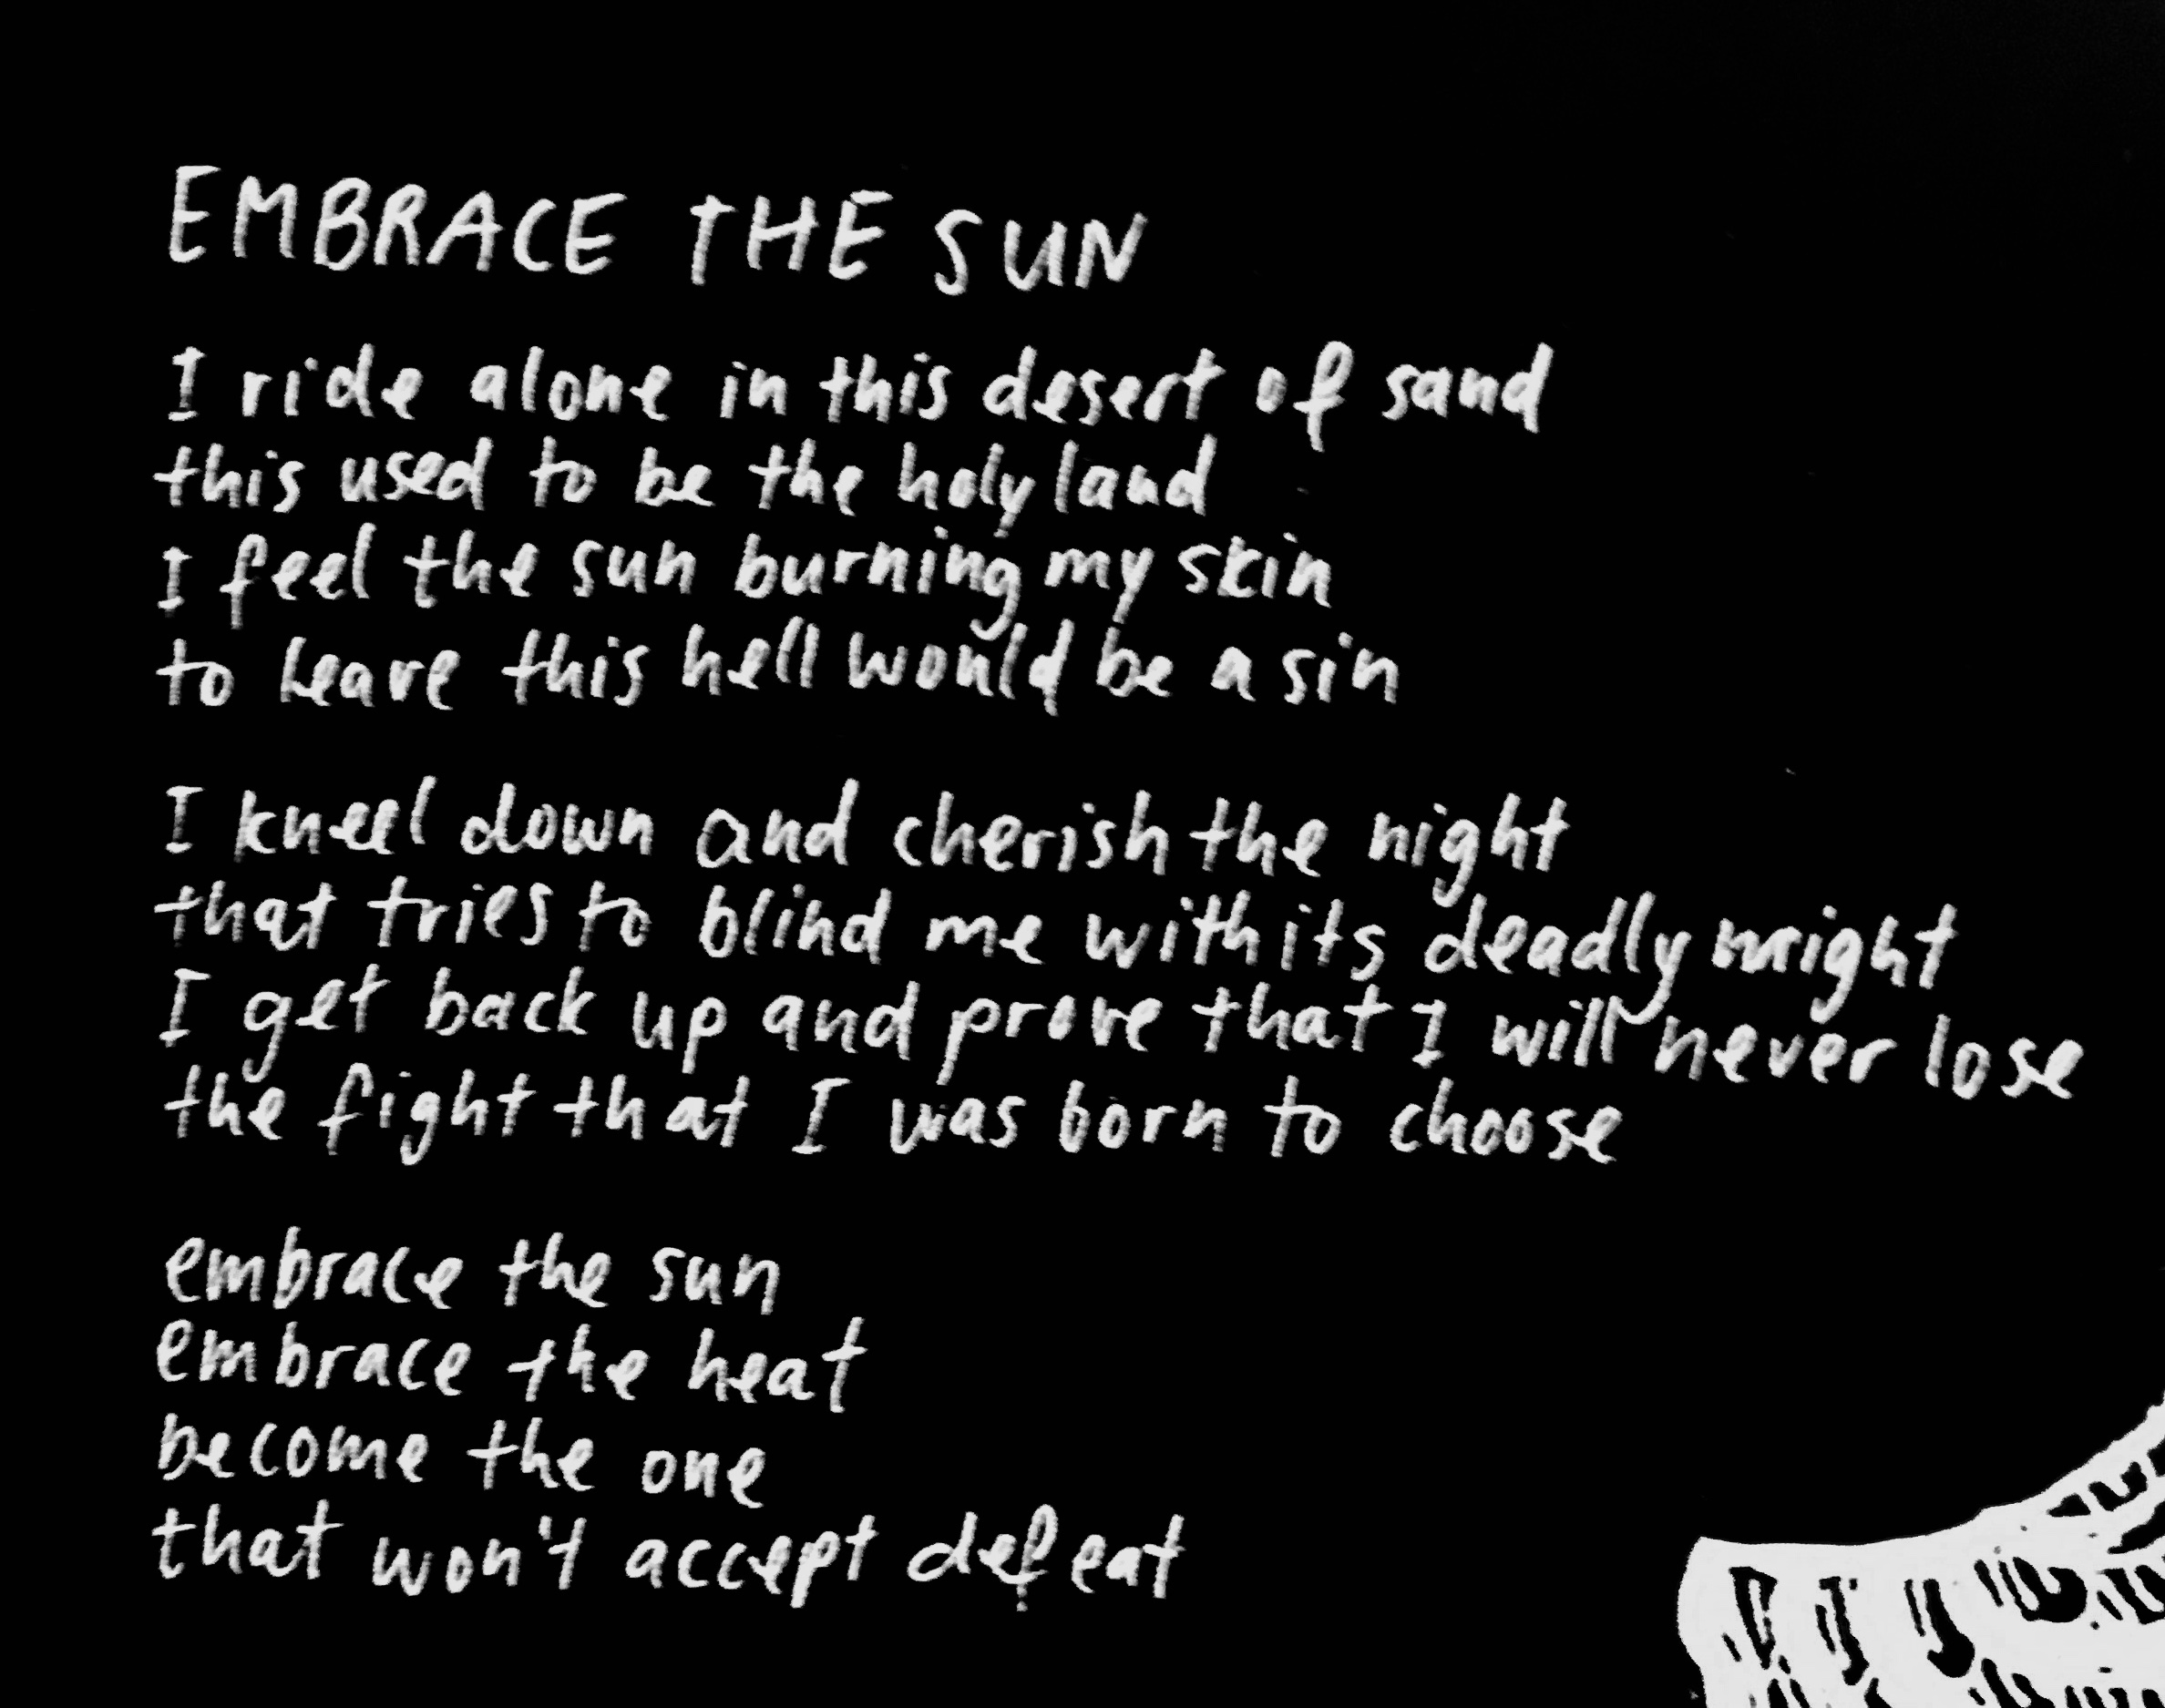 EMBRACE THE SUN
I ride alone in this desert of sand
this used to be the holy land
I feel the sun burning my skin
to leave this hell would be a sin
I kneel down and cherish the night
that tries to blind me with its deadly might
I get back up and prove that I will never lose
the fight that I was born to choose
embrace the sun
embrace the heat
become the one
that won't accept defeat